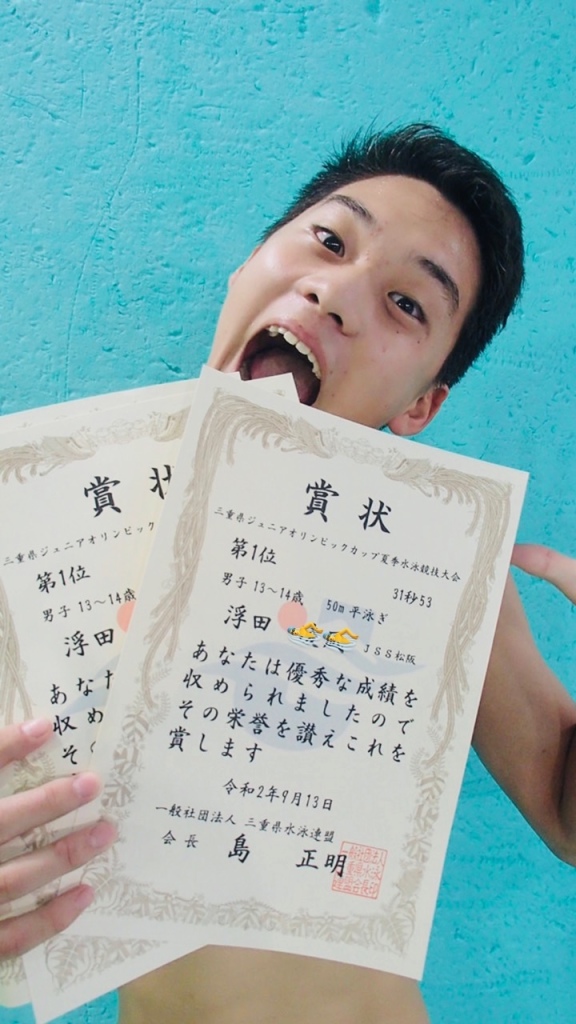 賞状
三重県ジュニアオリンピックカップ夏季水泳競技大会
第1位
31秒53
男子 13～14歳 50m 平泳ぎ
浮田
JSS松阪
あなたは優秀な成績を
収められましたので
その栄誉を讃えこれを
賞します
令和2年9月13日
一般社団法人 三重県水泳連盟
会長 島 正明
賞
三重県ジュニアオリンピック
第1位
男子 13～14歳
浮田
あなた
収め
そ